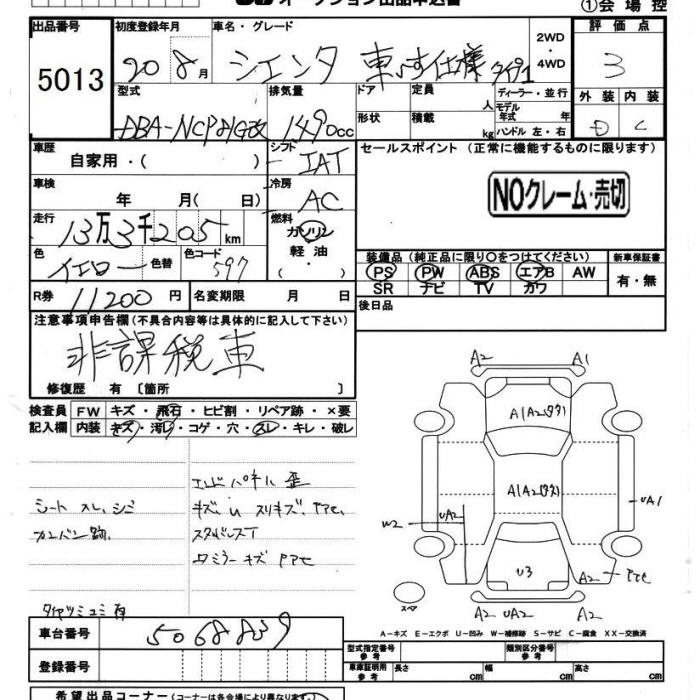 ①会場控
出品番号
初度登録年月
車名・グレード
2WD
・
4WD
評価点
5013
20 8月
シエンタ 車いす仕様 タイプ1
3
型式
排気量
ドア
定員
人
ディーラー・並行
モデル
年式
年
外装
内装
DBA-NCP81G改
1490cc
形状
積載
kg
ハンドル 左・右
D
C
車歴
自家用・( )
シフト
IAT
セールスポイント(正常に機能するものに限ります)
車検
年 月( 日)
冷房
AC
NOクレーム・売切
走行
13万3千205km
燃料
ガソリン
軽油
・
色
イエロー
色替
色コード
597
装備品(純正品に限り〇をつけてください)
新車保証書
PS PW ABS エアB AW
SR ナビ TV カワ
有・無
R券
11200円
名変期限
月 日
後日品
注意事項申告欄(不具合内容等は具体的に記入して下さい)
非課税車
修復歴 有 〔箇所 〕
検査員
記入欄
FW
キズ・飛石・ヒビ割・リペア跡・×要
内装
キズ・汚レ・コゲ・穴・スレ・キレ・破レ
シート スレ、シミ
カンバン跡
エンドパネル 歪
キズ、U スリキズ、
スタッドレスT
ワミラーキズ
タイヤツミコミ有
A2
A1
A1A2
A1A2
UA1
UA2
W2
U3
A2
A2
UA2
A2
スペア
A-キズ E-エクボ U-凹み W-補修跡 S-サビ C-腐食 XX-交換済
車台番号
5068839
型式指定番号
参考
類別区分番号
参考
登録番号
車庫証明用
参考
長さ
cm
幅
cm
高さ
cm
希望出品コーナー